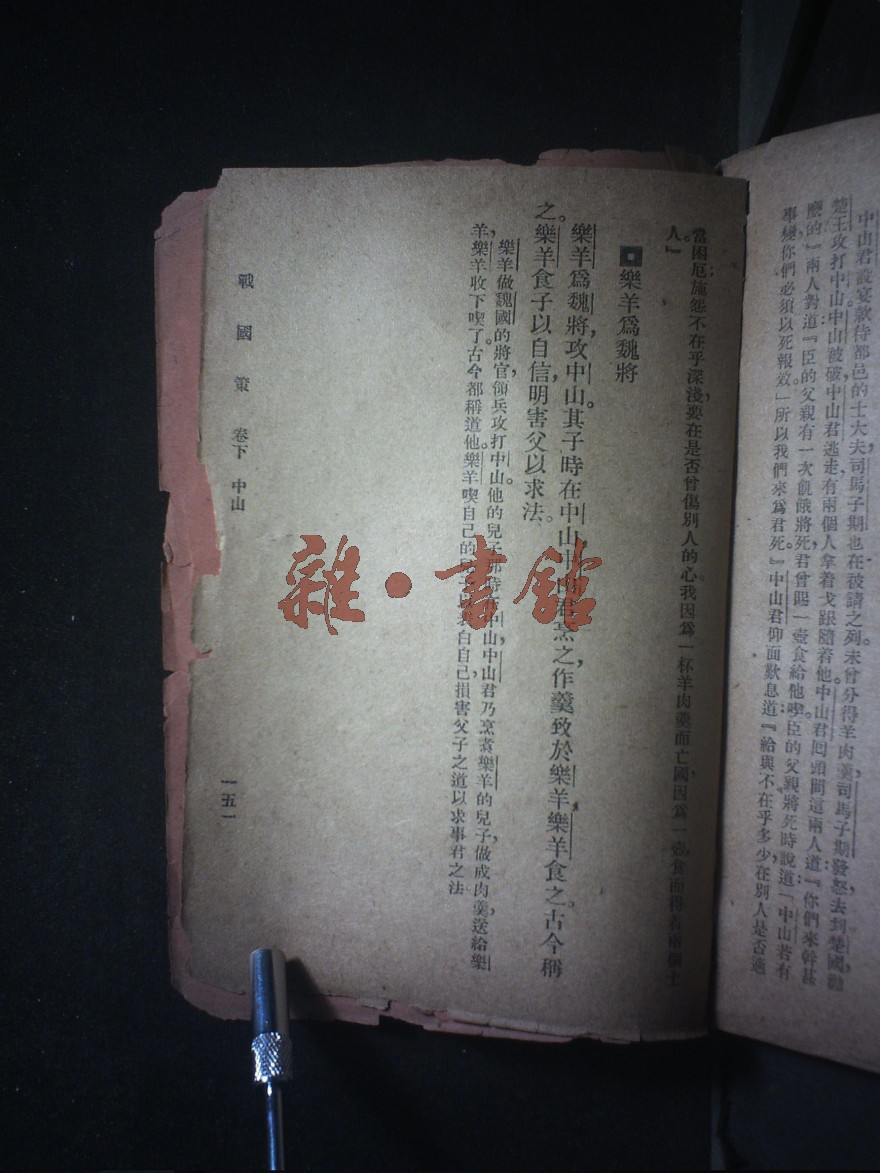 中山君設宴款待都邑的士大夫司馬子期也在被請之列。未曾分得羊肉羹司馬子期發怒去到楚國勸
楚王攻打中山中山被破中山君逃走有兩個人拿着戈跟隨着他。中山君回頭問這兩人道：『你們來幹甚
麼的』兩人對道：『臣的父親有一次飢餓將死君曾賜一壺食給他喫。臣的父親將死時說道：「中山若有
事變你們必須以死報效。」所以我們來爲君死』中山君仰面歎息道：『給與不在乎多少在別人是否適
當困厄施怨不在乎深淺，要在是否曾傷別人的心。我因爲一杯羊肉羹而亡國，因爲一壺食而得
人。』
樂羊爲魏將
樂羊爲魏將，攻中山。其子時在中山中山君烹之，作羹致於樂羊樂羊食之。古今稱
之。樂羊食子以自信，明害父以求法。
樂羊做魏國的將官，領兵攻打中山。他的兒子那時在中山，中山君乃烹煮樂羊的兒子，做成肉羹，送給樂
羊，樂羊收下喫了。古今都稱道他。樂羊喫自己的白自己，損害父子之道以求事君之法
戰國策 卷下 中山
一五一
雜·書館